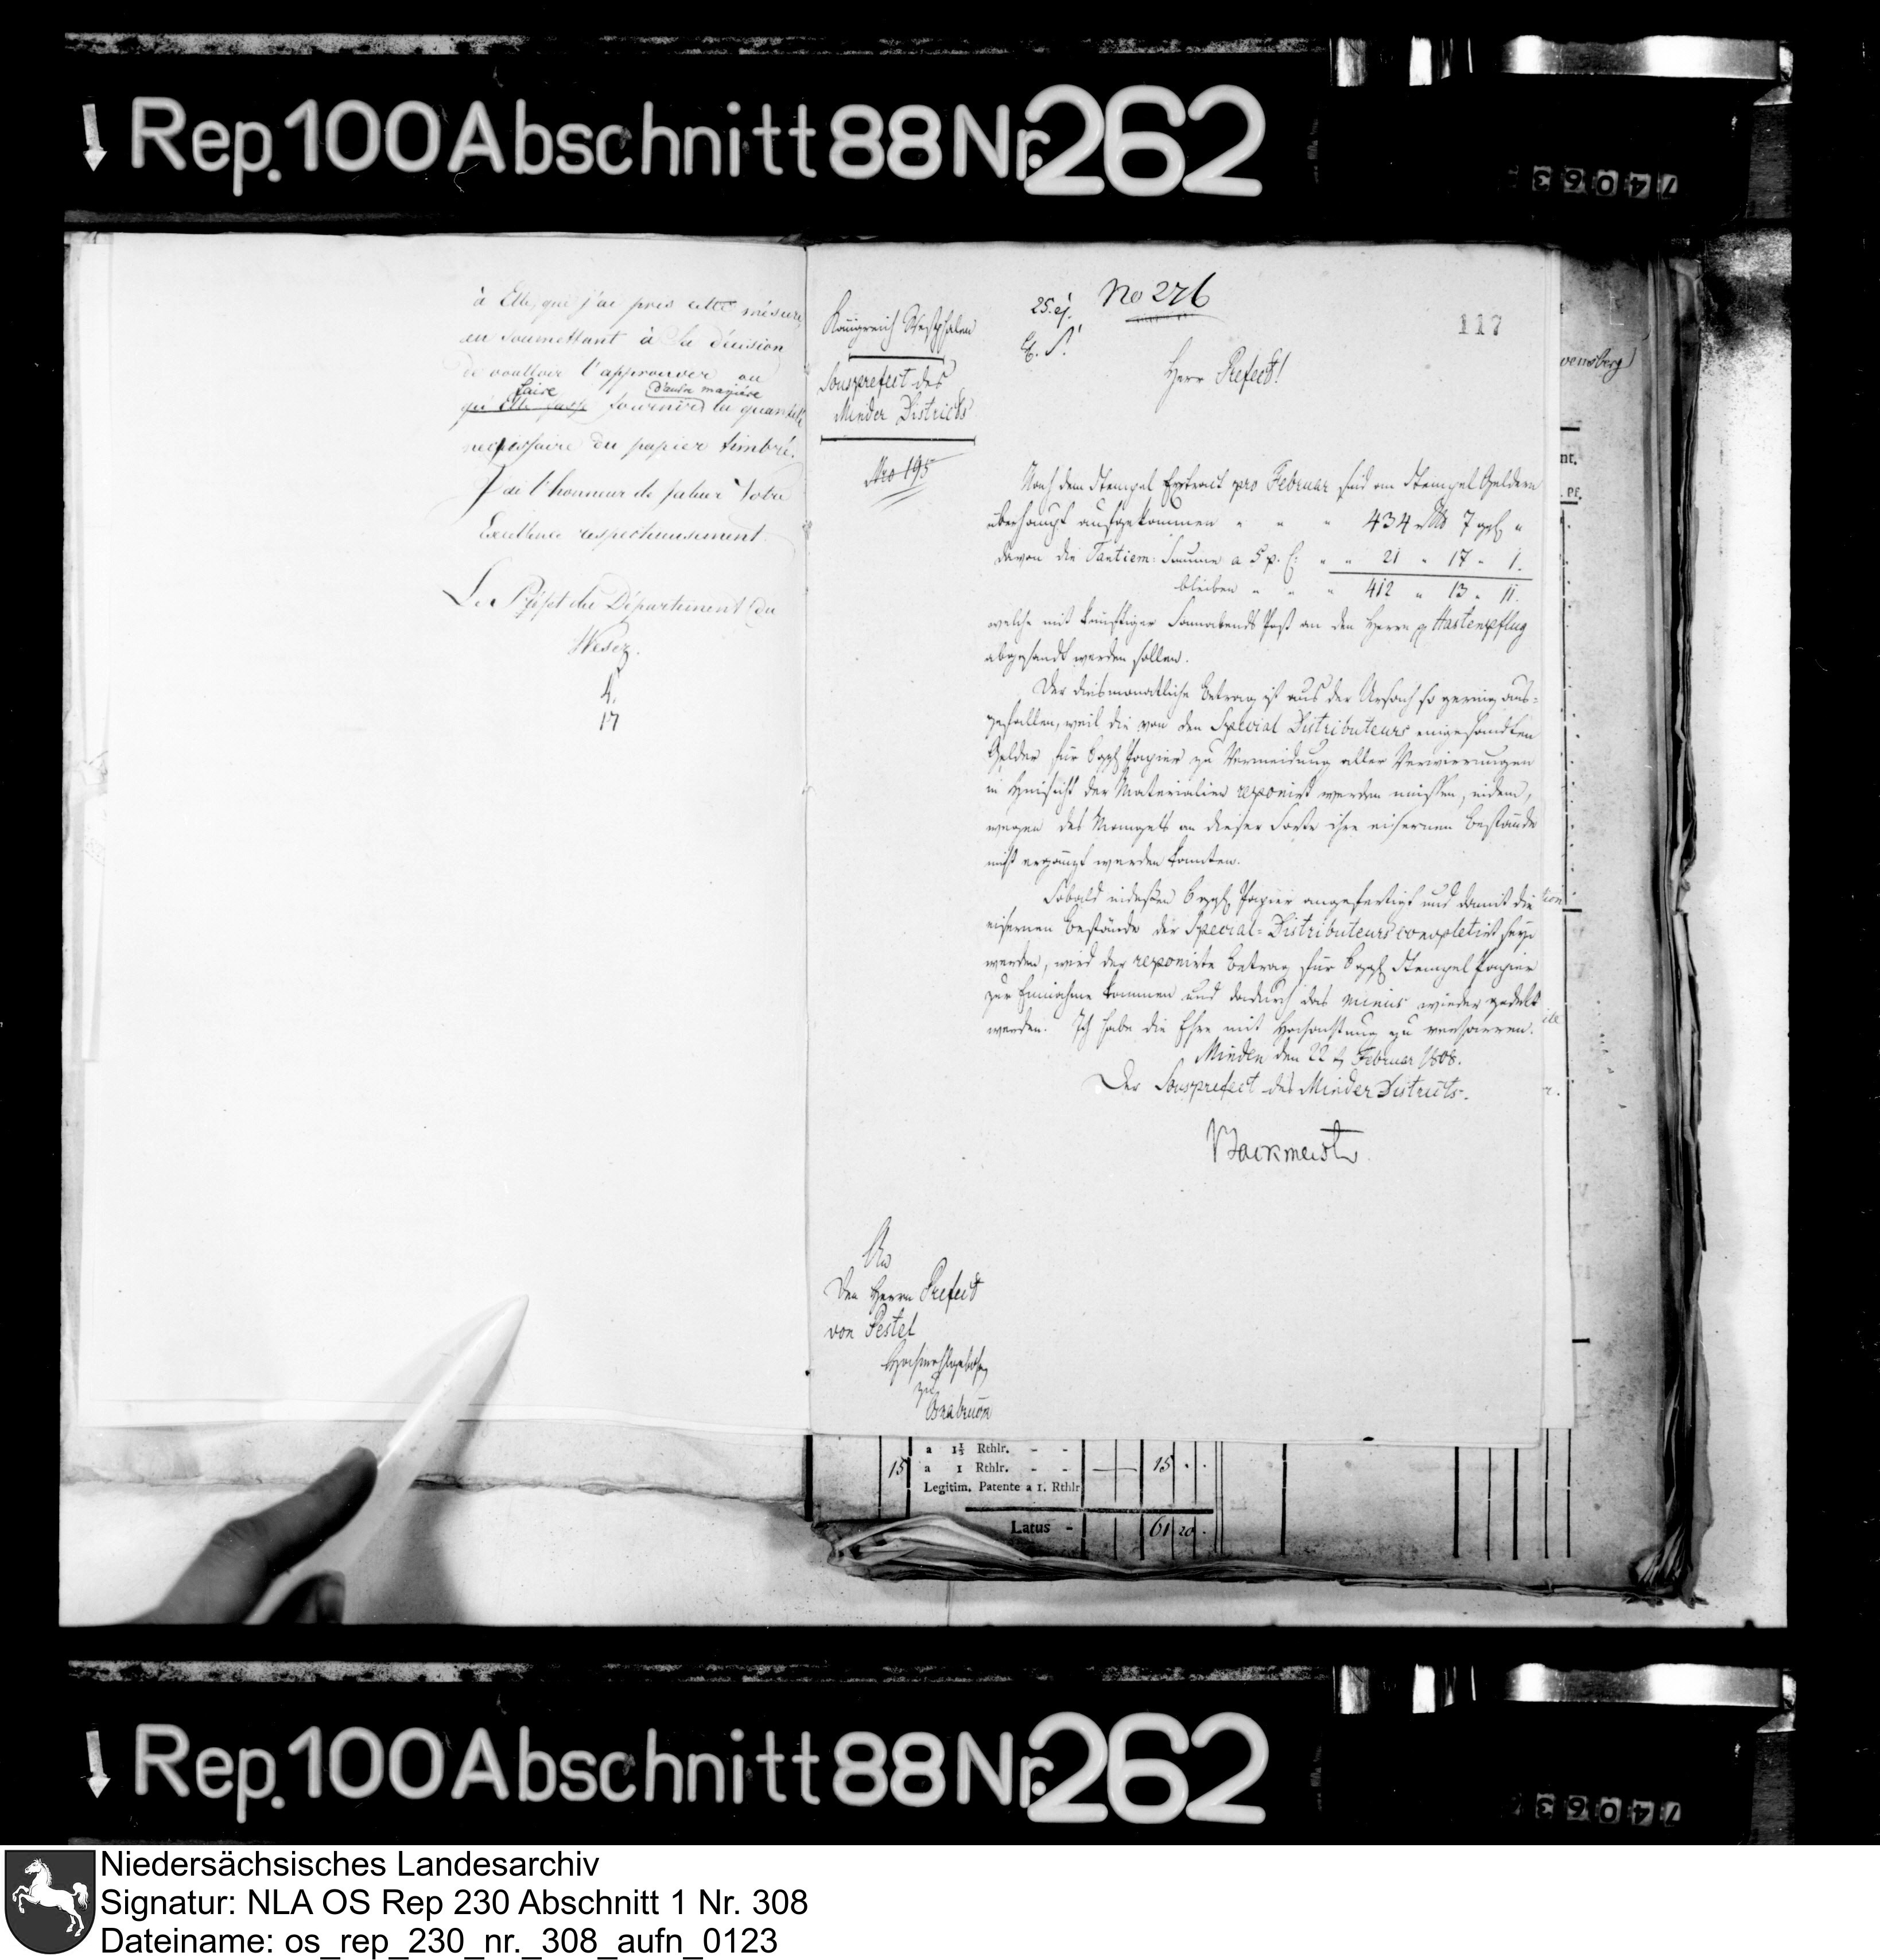 Rep. 100 Abschnitt 88 Nr. 262
74063
à Elle, que j'ai pris cette mésure
en soumettant à Sa décision
de voulloir l'approuver ou
faire d'autre manière
qu'Elle fasse fournir la quantité
necessaire du papier timbré.
J'ai l'honneur de saluer Votre
Excellence respectueusement
Le Préfet du Département du
Weser.
17
Königreich Westphalen
Sousprefect des
Minder Districts
Nro 195
25. ej.
No 276
117
Herr Prefect!
Nach dem Stempel Extract pro Februar sind an Stempel Geldern
überhaupt aufgekommen " " " 434 rtlr 7 ggl "
davon die Tantiem: Summe a 5 p. C: " " 21 " 17 " 1.
bleiben " " " 412 " 13 " 11.
welche mit künftiger Sonnabends Post an den Herrn p Hastenpflug
abgesandt werden sollen.
Der diesmonatliche Betrag ist aus der Ursach so gering aus-
gefallen, weil die von den Special Distributeurs eingesandten
Gelder für 6 ggl Papier zu Vermeidung aller Verwirrungen
in Hinsicht der Materialien reponirt werden müssen, indem,
wegen des Mangels an dieser Sorte ihre eisernen Bestände
nicht ergänzt werden konnten.
Sobald indeßen 6 ggl Papier angefertigt und damit die
eisernen Bestände der Special-Distributeurs completirt seyn
werden, wird der reponirte Betrag für 6 ggl Stempel Papier
zur Einnahme kommen und dadurch das minus wieder gedekt
werden. Ich habe die Ehre mit Hochachtung zu verharren.
Minden den 22 t Februar 1808.
Der Sousprefect des Minder Districts.
Backmeister
An
Den Herrn Prefect
von Pestel
Hochwohlgebohrn
zu
Osnabrück
vensberg)
nt.
Pf.
a 1½ Rthlr. - -
15 a 1 Rthlr. - - 15 . .
Legitim. Patente a 1. Rthlr
Latus - 61 20 .
Rep. 100 Abschnitt 88 Nr. 262
74063
Niedersächsisches Landesarchiv
Signatur: NLA OS Rep 230 Abschnitt 1 Nr. 308
Dateiname: os_rep_230_nr._308_aufn_0123